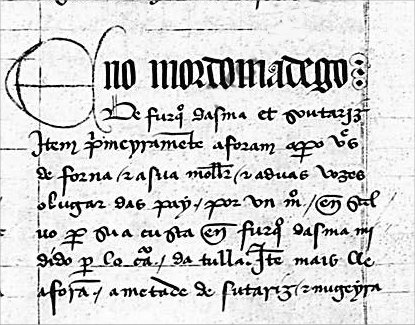 Eno mordomadego
de furq̃ dasma et soutariz
Item p̃mcyramẽte aforam apº vs̃
de forna / ⁊ a sua moll̃r / ⁊ a duas vozes
o lugar das pay / por vn mº. / en
uo p̃ sua custa en furq̃ dasma mi
dido p̃ lo / da tulla. Itẽ mais lle
aforã / ametade de sutariz / ⁊ nugeyra